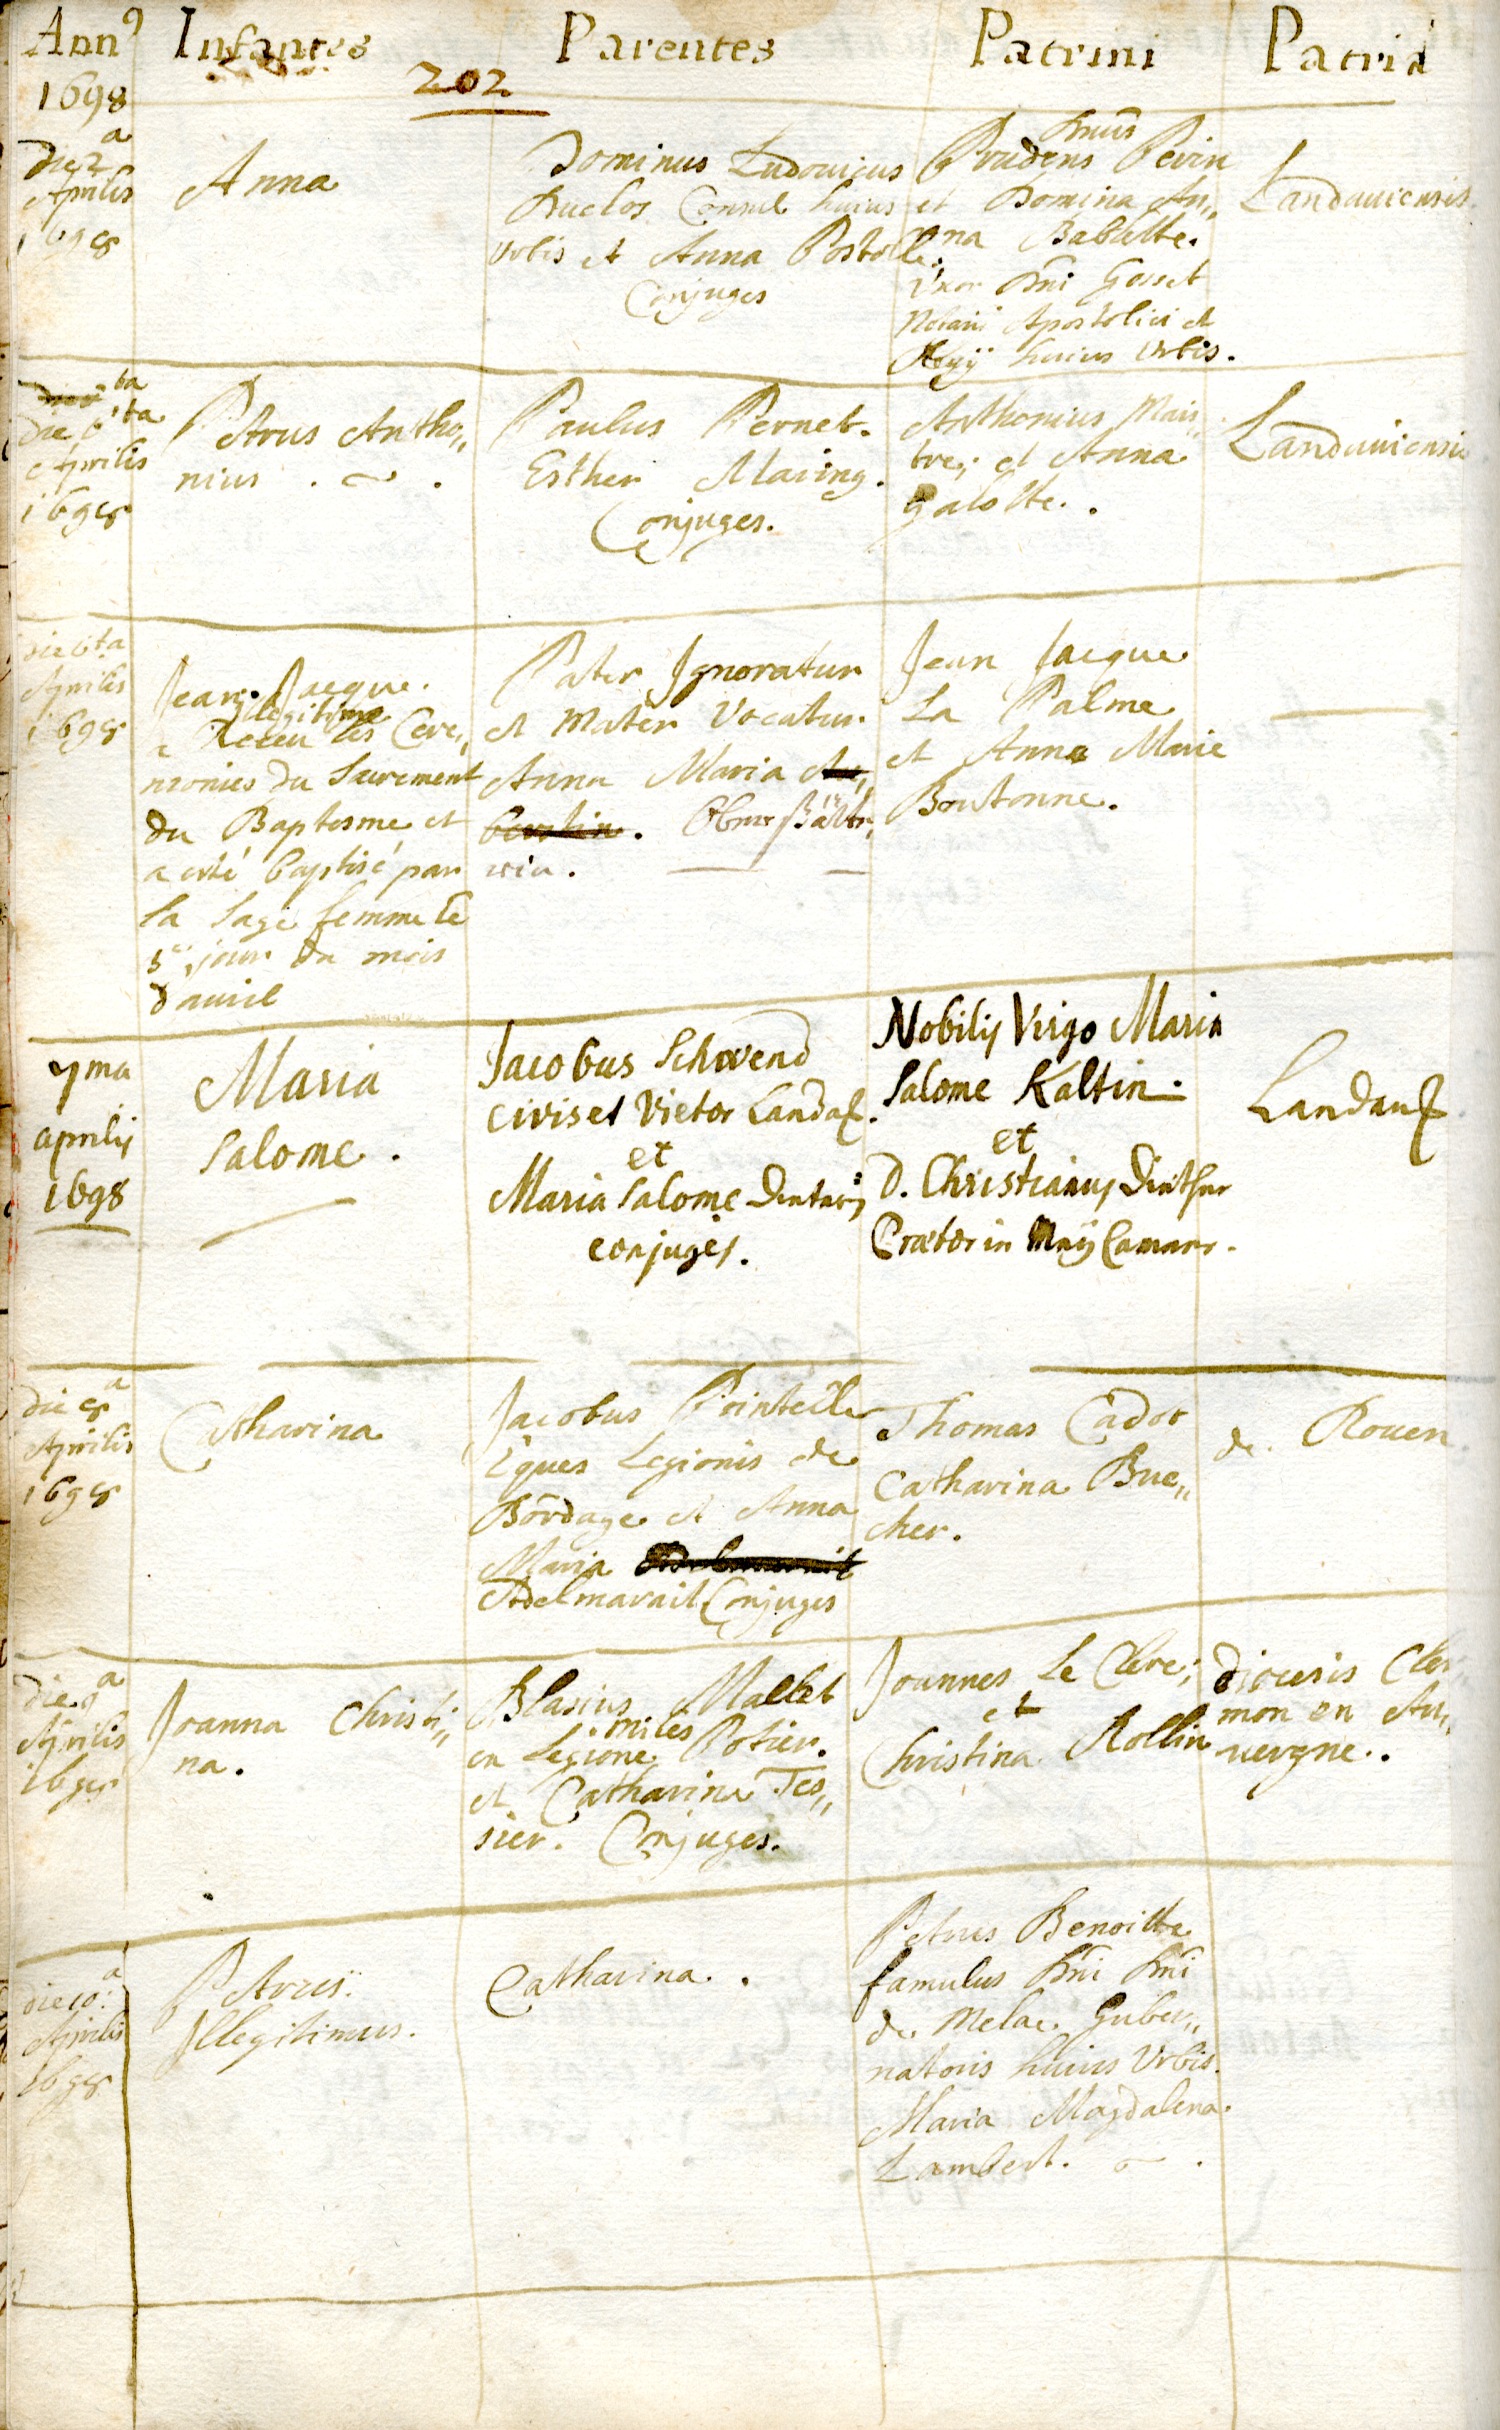 Ann⁹ Infantes Parentes Patrini Patria
1698
202
die 2ᵃ
Aprilis
1698
Anna
Dominus Ludovicus
Duclos Consul huius
Urbis et Anna Postolle.
Conjuges
Dnus
Prudens Perin
et Domina An,,
na Babalte.
Uxor Dni Gosset
Notarii Apostolici et
Regij huius Urbis.
Landaviensis
die 6ta
Aprilis
1698
Petrus Antho,,
nius . ~ .
Paulus Pernet.
Esther Maring.
Conjuges.
Anthonius Mais,,
tre, et Anna
galotte. .
Landaviensis
die 6ta
Aprilis
1698
Jean Jacque.
illegitime
a Receu les Cere,,
monies du Sacrement
du Baptesme et
a esté baptisé par
la sage femme le
5e jour du mois
d'avril
Pater Ignoratur
et Mater Vocatur
Anna Maria
win.
Jean Jacque
La Palme
et Anna Marie
Boutonne.
7ma
aprilis
1698
Maria
Salome.
Jacobus Schwend
civis et Vietor Landa.
et
Maria Salome
conjuges.
Nobilis Virgo Maria
Salome Kaltin.
et
D. Christianus
Prætor in
Landau
die 8ᵃ
Aprilis
1698
Catharina
Jacobus Pointeille
Eques Legionis de
Bordage et Anna
Maria
Adelmarait Conjuges
Thomas Cador
Catharina Bue,,
cher.
de Rouen
die 9ᵃ
Aprilis
1698
Joanna Christi,,
na.
Blasius Mallet
miles
en Legione Potier.
et Catharina Tes,,
sier. Conjuges.
Joannes Le Clerc,
et
Christina Rollin
diocesis Cler
mon en Au,,
vergne..
die 10ᵃ
Aprilis
1698
Petrus
Illegitimus.
Catharina. .
Petrus Benoitte
famulus Dni Dni
de Melac. Guber,,
natoris huius Urbis.
Maria Magdalena
Lambert. ~ .